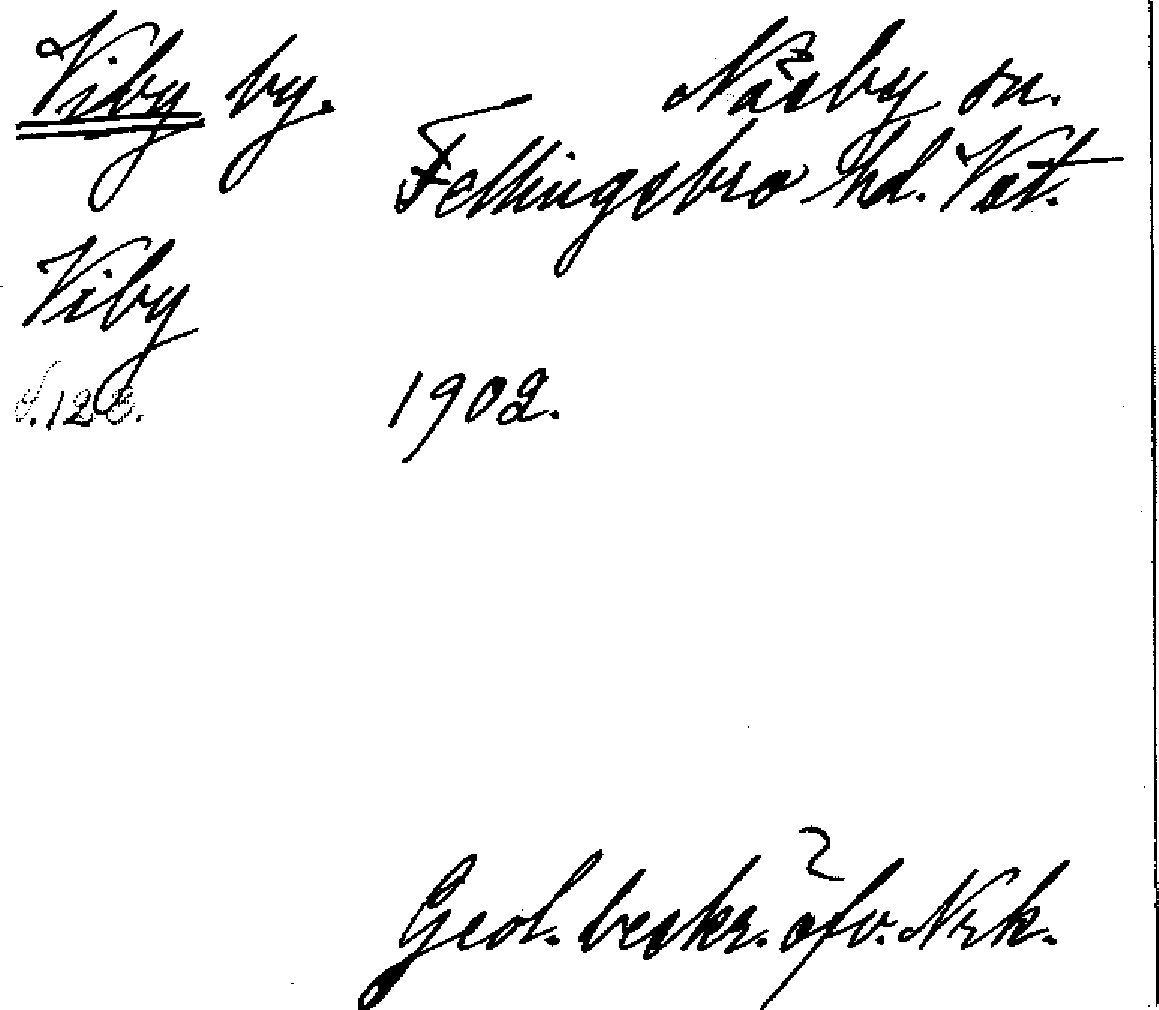 Viby by. Näsby sn.
Fellingsbro hd. Vstm.
Viby
s. 128. 1902.
Geol. beskr. öfv. Nrk.